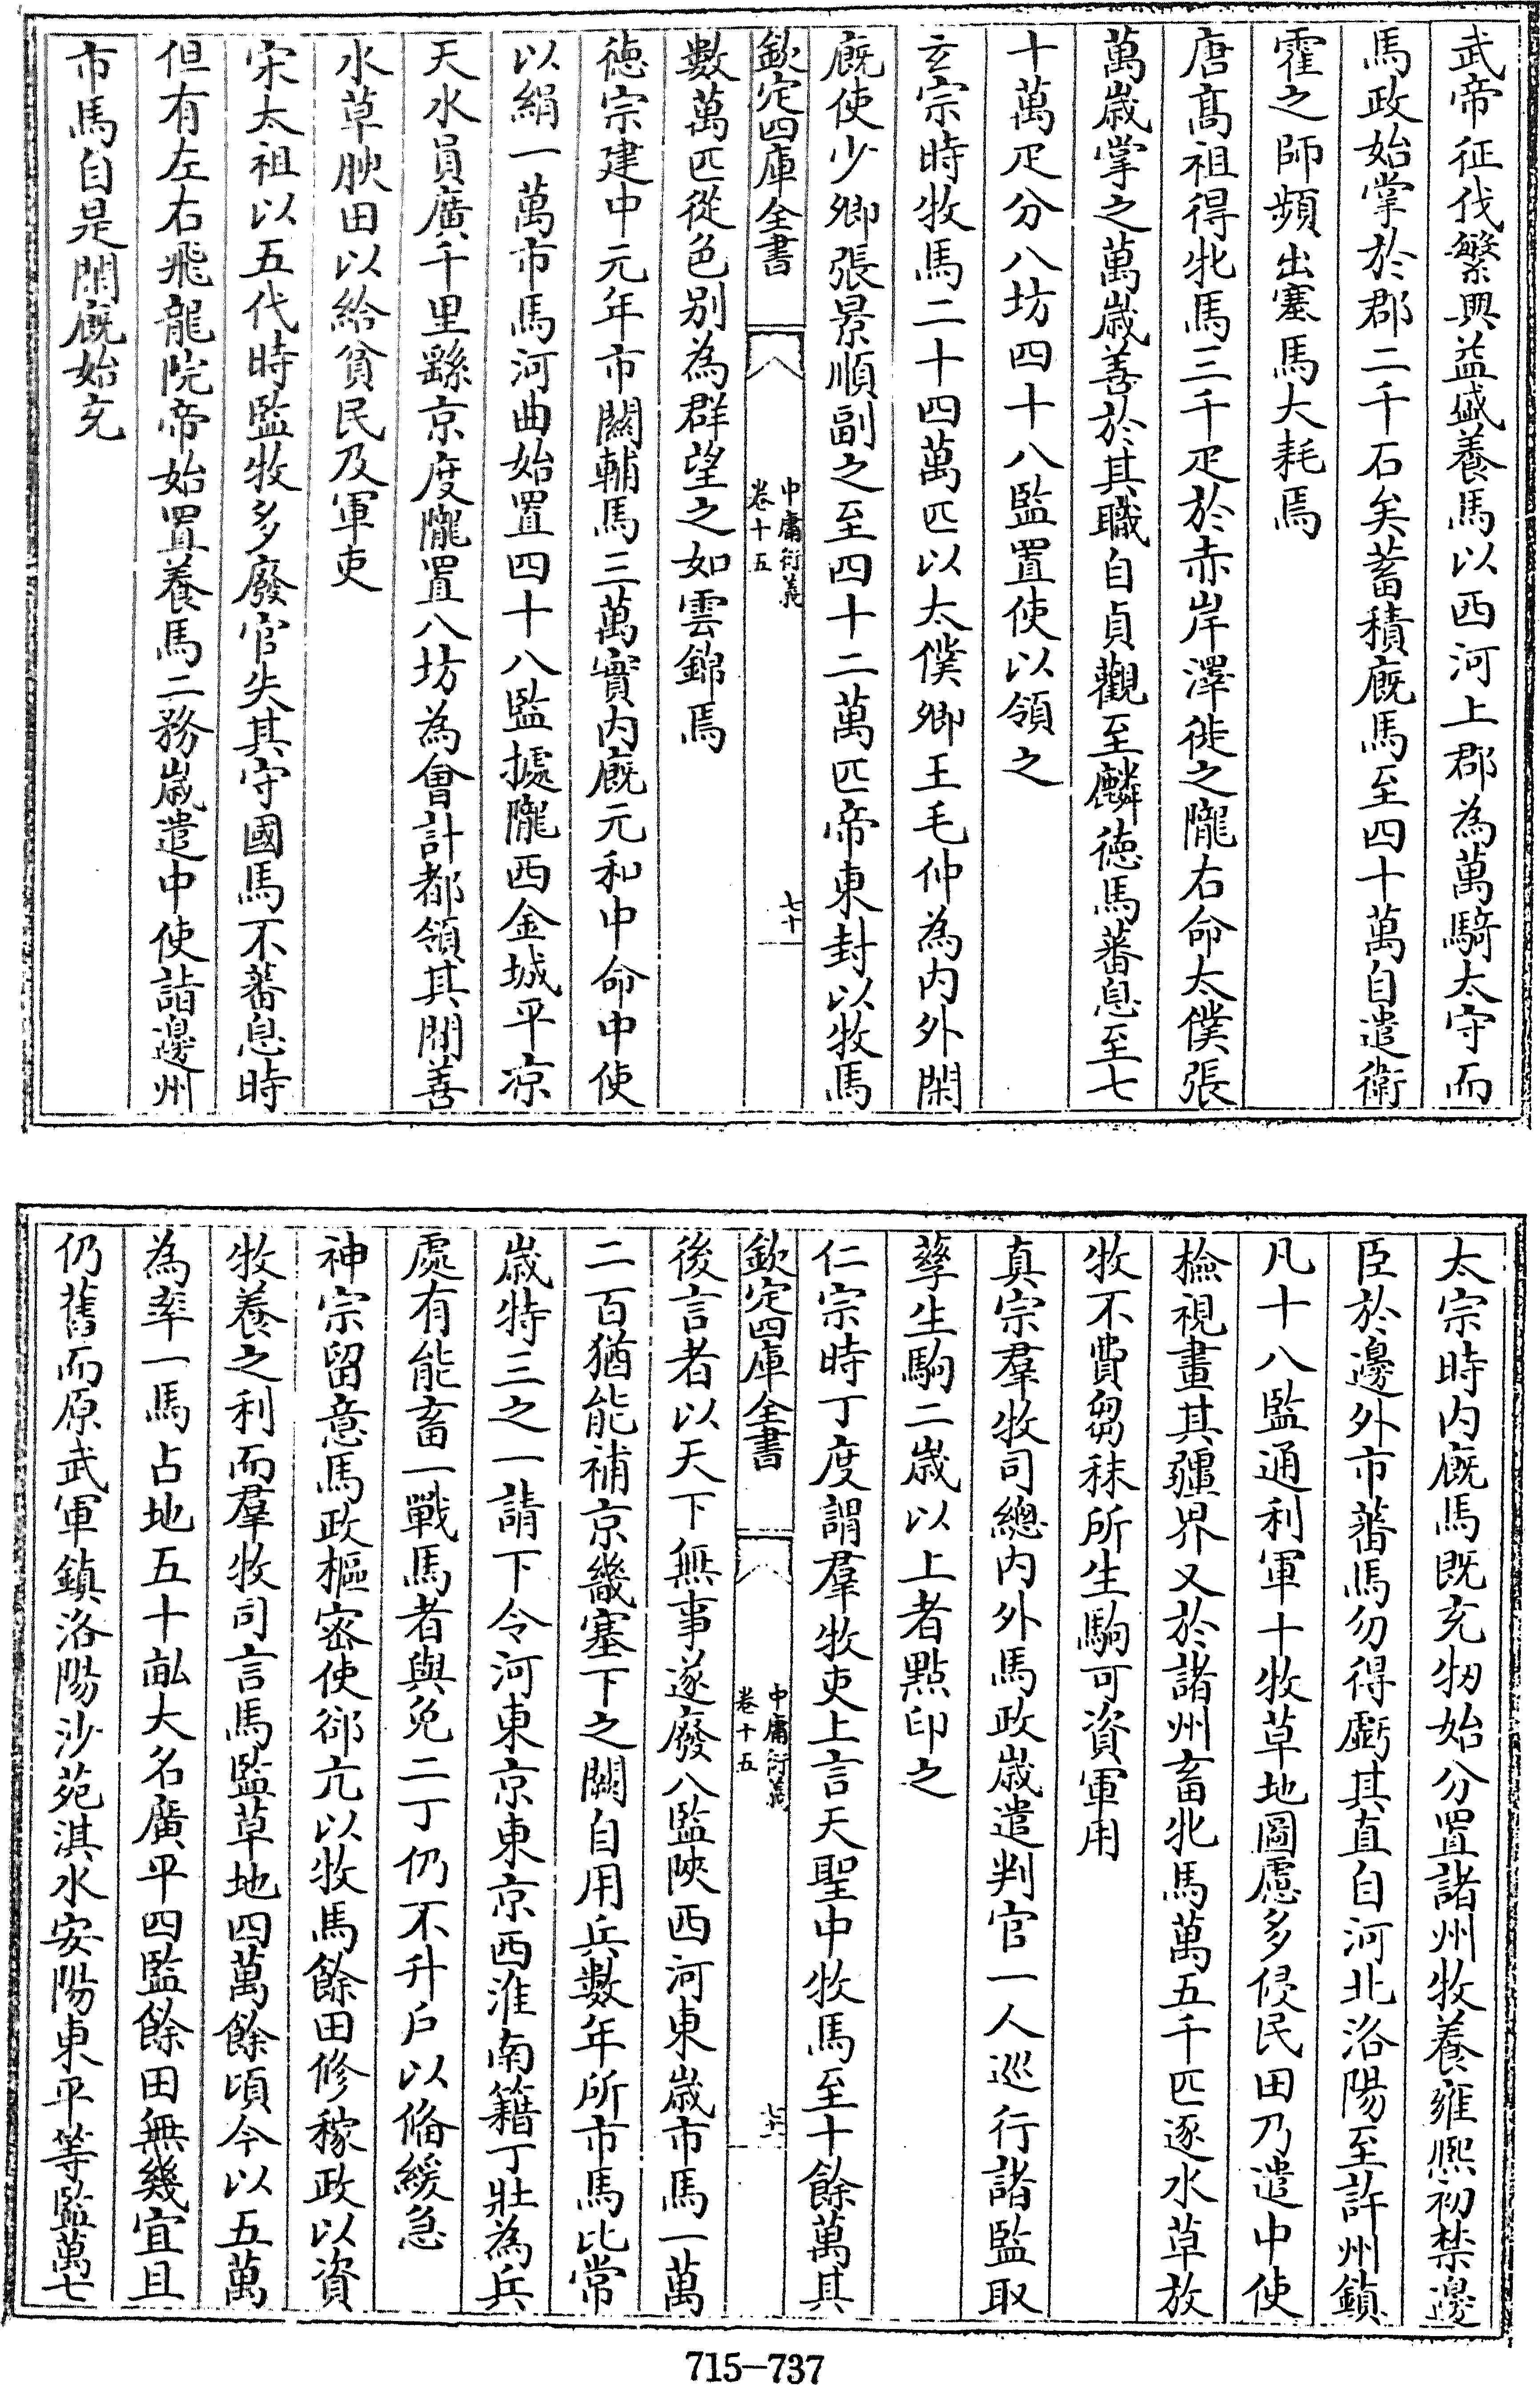 武帝征伐繁興益盛養馬以西河上郡為萬騎太守而
馬政始掌於郡二千石矣蓄積廐馬至四十萬自遣衛
霍之師頻出塞馬大耗焉
唐髙祖得牝馬三千疋於赤岸澤徙之隴右命太僕張
萬歲掌之萬歲善於其職自貞觀至麟徳馬蕃息至七
十萬疋分八坊四十八監置使以領之
玄宗時牧馬二十四萬匹以太僕卿王毛仲為内外閑
廐使少卿張景順副之至四十二萬匹帝東封以牧馬
欽定四庫全書
中庸衍義
卷十五
七十
數萬匹從色别為群望之如雲錦焉
徳宗建中元年市關輔馬三萬實内廐元和中命中使
以絹一萬市馬河曲始置四十八監據隴西金城平凉
天水員廣千里繇京度隴置八坊為會計都領其間善
水草腴田以給貧民及軍吏
宋太祖以五代時監牧多廢官失其守國馬不蕃息時
但有左右飛龍院帝始置養馬二務嵗遣中使詣邊州
市馬自是閑廐始充
太宗時内廐馬既充牣始分置諸州牧養雍熙初禁邊
臣於邊外市蕃馬勿得虧其直自河北洛陽至許州鎮
凡十八監通利軍十牧草地圖慮多侵民田乃遣中使
檢視畫其疆界又於諸州畜牝馬萬五千匹逐水草放
牧不費芻秣所生駒可資軍用
真宗羣牧司總内外馬政嵗遣判官一人巡行諸監取
孳生駒二嵗以上者點印之
仁宗時丁度謂羣牧吏上言天聖中牧馬至十餘萬其
欽定四庫全書
中庸衍義
卷十五
後言者以天下無事遂廢八監陜西河東嵗市馬一萬
二百猶能補京畿塞下之闕自用兵數年所市馬比常
嵗特三之一請下令河東京東京西淮南籍丁壯為兵
處有能畜一戰馬者與免二丁仍不升户以偹緩急
神宗留意馬政樞密使邵亢以牧馬餘田修稼政以資
牧養之利而羣牧司言馬監草地四萬餘頃今以五萬
為率一馬占地五十畆大名廣平四監餘田無幾宜且
仍舊而原武軍鎮洛陽沙苑淇水安陽東平等監萬七
715—737